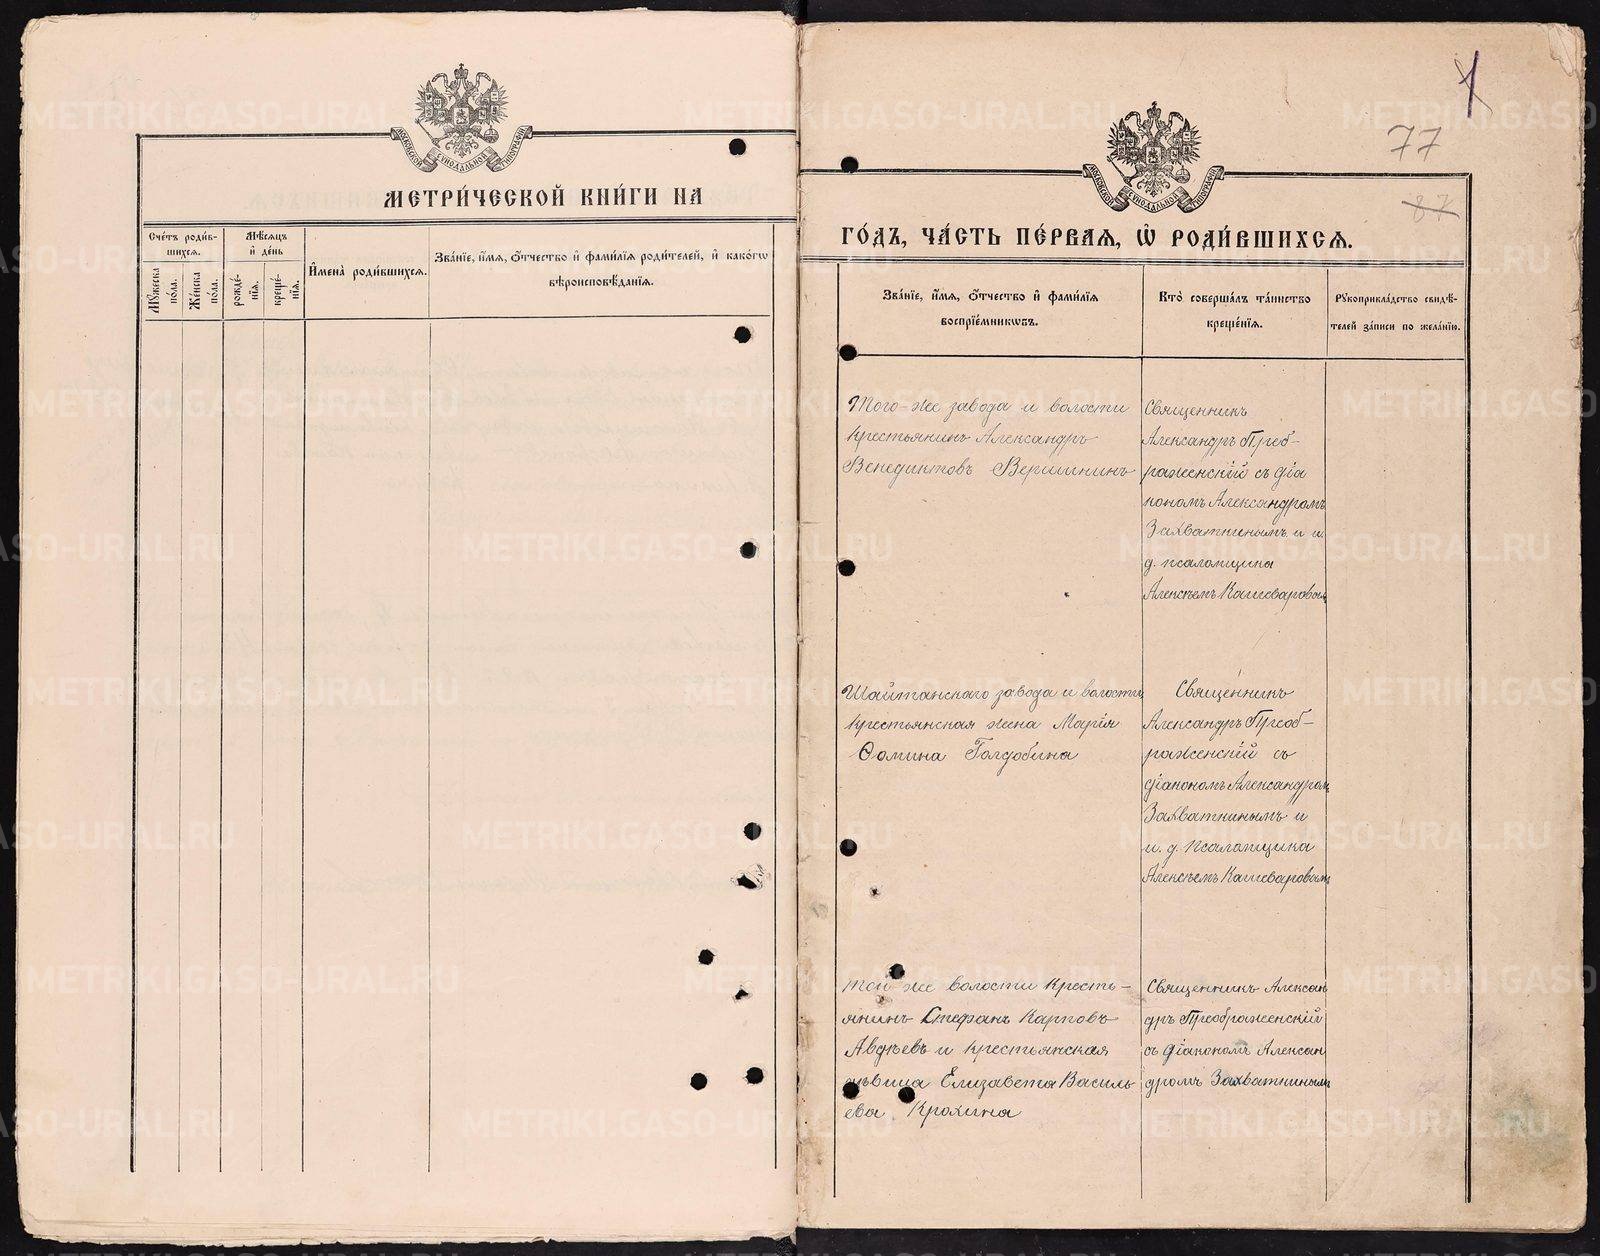 МЕТРИ́ЧЕСКОЙ КНИ́ГИ НА
Сче́тъ роди́в-
шихсѧ.
Мѣ́сѧцъ
и҆ де́нь
Мꙋ́жеска по́ла.
Же́нска по́ла.
рожде́-нїѧ.
креще́-нїѧ.
И҆мена̀ роди́вшихсѧ.
Зва́нїе, и҆́мѧ, ѻ҆́тчество и҆ фами́лїѧ роди́телей, и҆ како́гѡ
вѣроисповѣ́данїѧ.
МОСКОВСКОЙ СѴНОДАЛЬНОЙ ТИПОГРАФІИ
1
77
87
МОСКОВСКОЙ СѴНОДАЛЬНОЙ ТИПОГРАФІИ
ГО́ДЪ, ЧА́СТЬ ПЕ́РВАѦ, Ѡ҆ РОДИ́ВШИХСѦ.
Зва́нїе, и҆́мѧ, ѻ҆́тчество и҆ фами́лїѧ
воспрїе́мникѡвъ.
Кто̀ соверша́лъ та́инство
креще́нїѧ.
Рꙋкоприкла́дство свидѣ́-
телей за́писи по жела́нїю.
Того-же завода и волости
крестьянинъ Александръ
Венедиктовъ Вершининъ
Священникъ
Александръ Преоб-
раженскій съ діа
кономъ Александромъ
Захваткинымъ и и.
д. псаломщика
Алексѣемъ Кашеваровым
Шайтанскаго завода и волости
крестьянская жена Марія
Ѳомина Голдобина
Священникъ
Александръ Преоб-
раженскій съ
діакономъ Александром
Захваткинымъ и
и. д. псаломщика
Алексѣемъ Кашеваровым
Той же волости кресть-
янинъ Стефанъ Карповъ
Авдѣевъ и крестьянская
дѣвица Елизавета Василь
ева Крохина
Священникъ Алексан
дръ Преображенскій
съ діакономъ Алексан
дромъ Захваткиным
METRIKI.GASO-URAL.RU